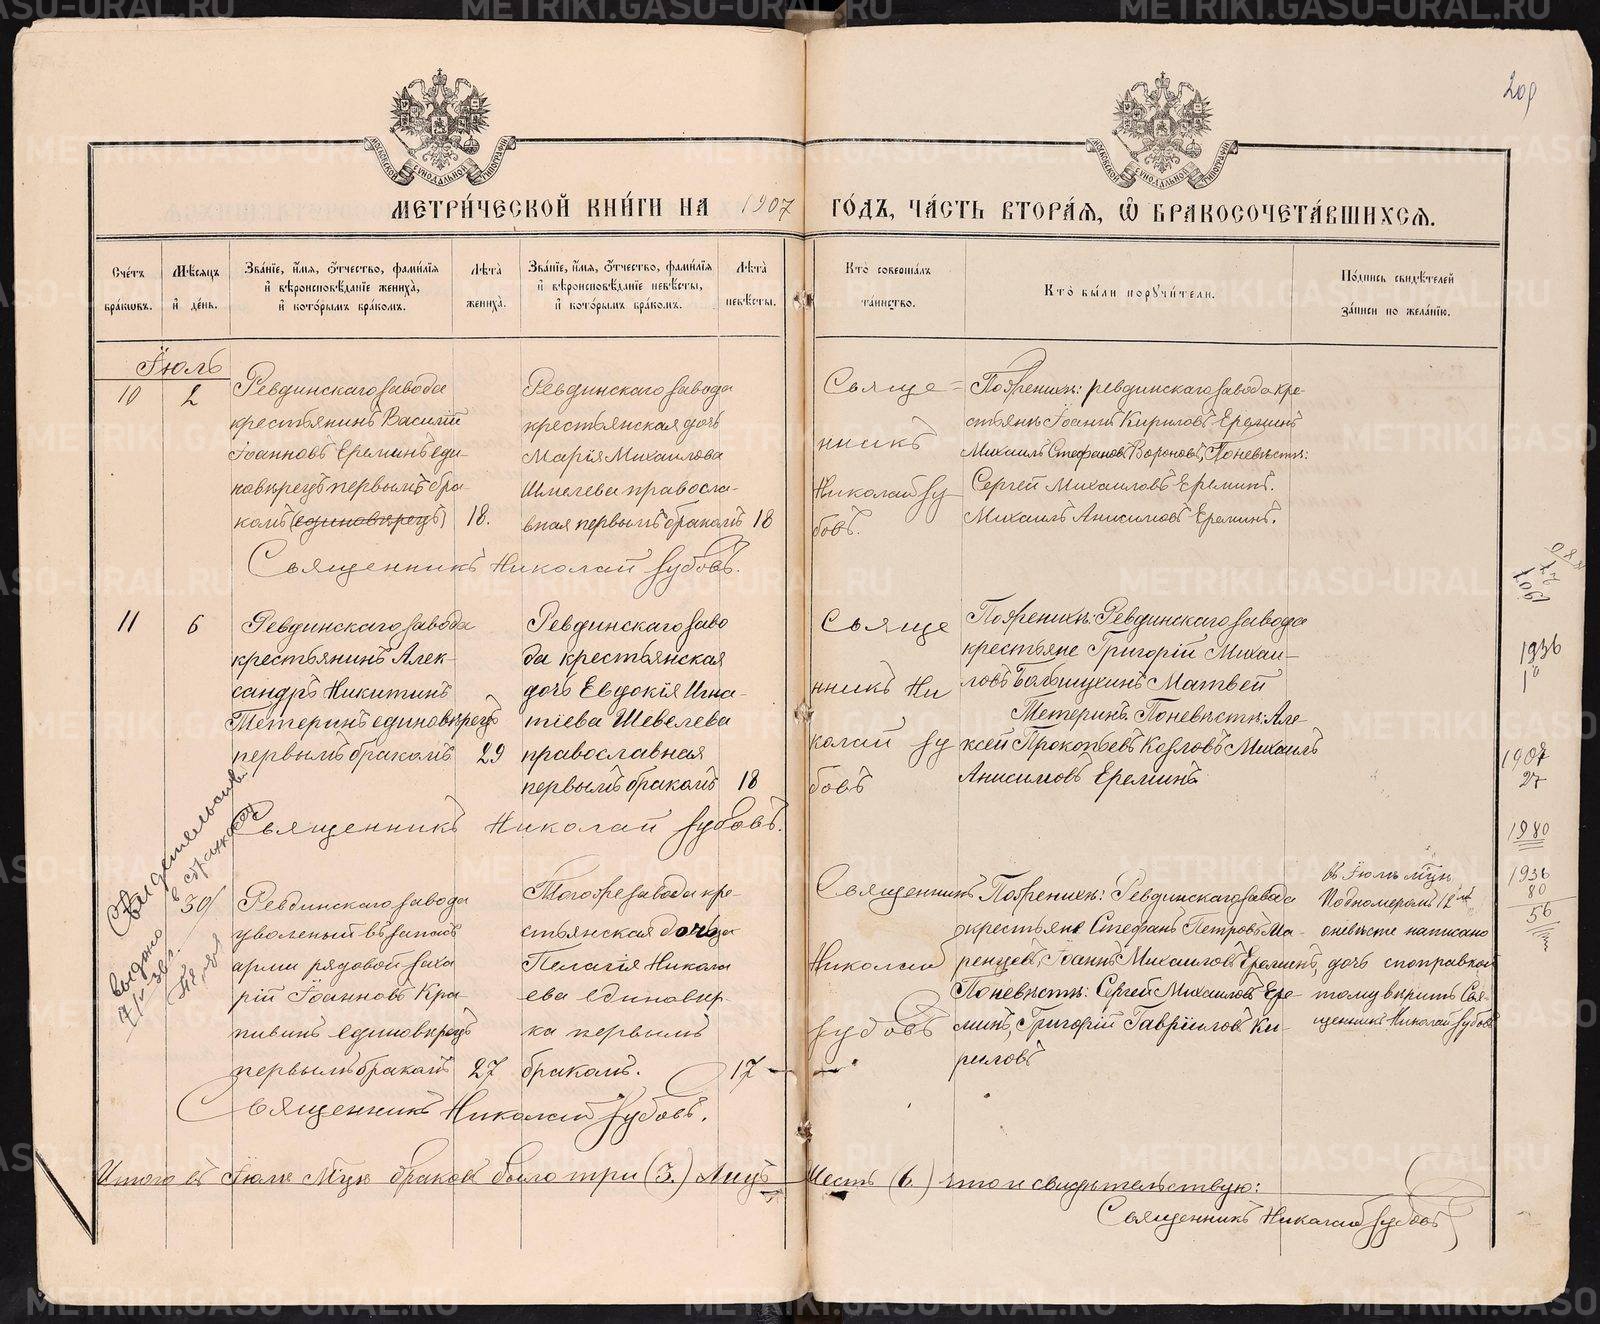 209
МЕТРИ́ЧЕСКОЙ КНИ́ГИ НА 1907 ГО́ДЪ, ЧА́СТЬ ВТОРА́Ѧ, Ѽ БРАКОСОЧЕТА́ВШИХСѦ.
Сче́тъ бра́кѡвъ.
Мѣ́сѧцъ и҆ де́нь.
Зва́нїе, и҆́мѧ, ѻ҆́тчество, фами́лїѧ и҆ вѣроисповѣ́данїе жениха̀, и҆ кото́рымъ бра́комъ.
Лѣ̀та жениха̀.
Зва́нїе, и҆́мѧ, ѻ҆́тчество, фами́лїѧ и҆ вѣроисповѣ́данїе невѣ́сты, и҆ кото́рымъ бра́комъ.
Лѣ̀та невѣ́сты.
Кто̀ соверша́лъ та́инство.
Кто̀ бы́ли порꙋчи́тели.
По́дпись свидѣ́телей за́писи по жела́нїю.
Іюль
10
2
Ревдинскаго завода
крестьянинъ Василій
Іоанновъ Ереминъ еди-
новѣрецъ первымъ бра
комъ (единовѣрецъ)
18.
Ревдинскаго завода
крестьянская дочь
Марія Михаилова
Шмелева правосла-
вная первымъ бракомъ
18
Свяще-
нникъ
Николай Зу
бовъ.
По женихѣ: ревдинскаго завода кре-
стьяне Іоаннъ Кириловъ Ереминъ
Михаилъ Стефановъ Вороновъ, По невѣстѣ:
Сергей Михаиловъ Ереминъ.
Михаилъ Анисимовъ Ереминъ.
Священникъ Николай Зубовъ.
11
6
Ревдинскаго завода
крестьянинъ Алек-
сандръ Никитинъ
Тетеринъ единовѣрецъ
первымъ бракомъ
29
Ревдинскаго заво
да крестьянская
дочь Евдокія Игна-
тіева Шевелева
православная
первымъ бракомъ
18
Свяще
нникъ Ни
колай Зу
бовъ
По женихѣ: Ревдинскаго завода
крестьяне Григорій Михаи-
ловъ Матвей
Тетеринъ. По невѣстѣ: Але-
ксей Прокопьевъ Козловъ Михаилъ
Анисимовъ Ереминъ
Священникъ Николай Зубовъ.
Свидетельство
о бракосоч
выдано
30
Ревдинскаго завода
уволеный въ запасъ
арми рядовой Заха
рій Іоанновъ Кра
пивинъ единовѣрецъ
первымъ бракомъ
27
Тогоже завода кре-
стьянская дочь
Пелагія Никола
ева единовѣр-
ка первымъ
бракомъ.
17
Священникъ
Николай
Зубовъ
По женихѣ: Ревдинскаго завода
крестьяне Стефанъ Петровъ Ма-
ренцовъ, Іоаннъ Михаиловъ Ереминъ,
По невѣстѣ: Сергей Михаиловъ Ере-
минъ, Григорій Гавріиловъ Ки-
риловъ
въ Іюлѣ мцѣ
Подномеромъ 12
о невѣсте написано
дочь споправкой
тому вѣрить Свя-
щенникъ Николай Зубовъ
Священникъ Николай Зубовъ.
Итого въ Іюлѣ Мцѣ браковъ было три (3.) Лицъ Шесть (6.) что и свидѣтельствую:
Священникъ Николай Зубовъ
1907
27
1936
1907
27
1980
1936
80
56